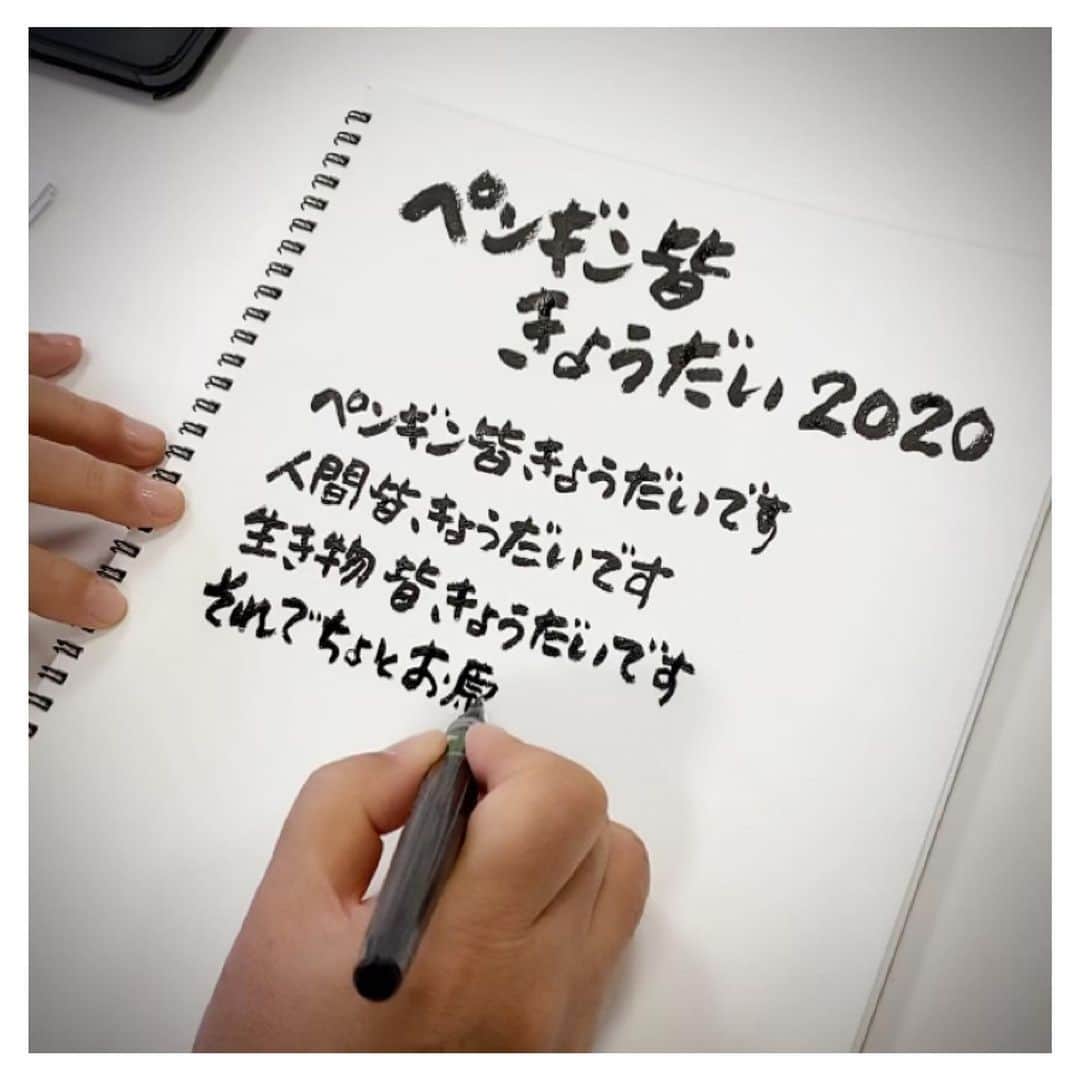 ペンギン皆
きょうだい2020
ペンギン皆、きょうだいです
人間皆、きょうだいです
生き物皆、きょうだいです
それでちょとお原